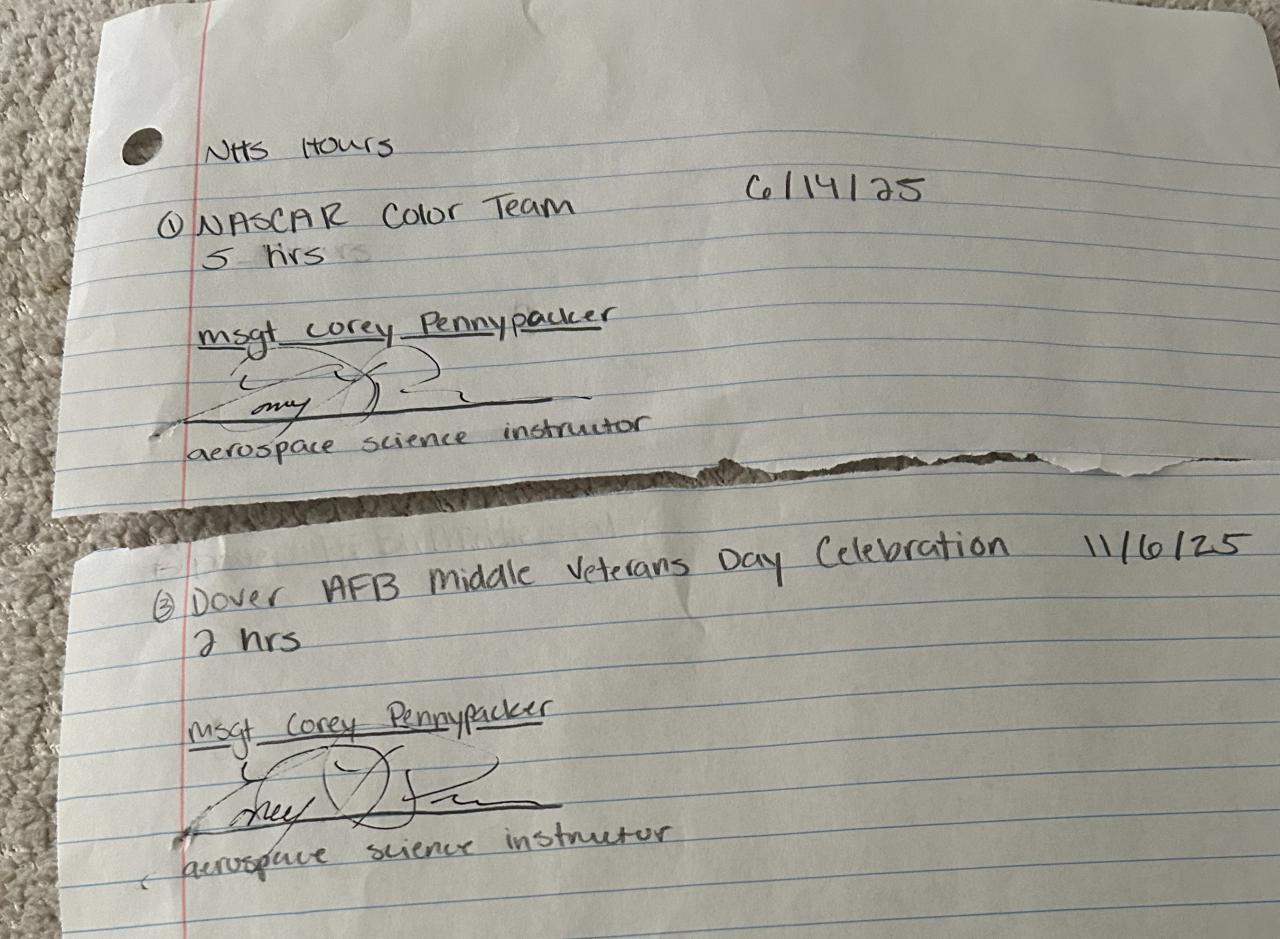 NHS Hours
① NASCAR Color Team 6/14/25
5 hrs
msgt corey Pennypacker
aerospace science instructor
③ Dover AFB Middle Veterans Day Celebration 11/6/25
2 hrs
msgt Corey Pennypacker
aerospace science instructor